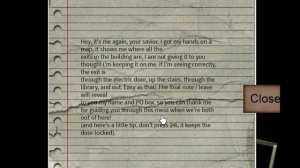 Hey, it's me again, your savior. I got my hands on a
map, it shows me where all the
exits in the building are, I am not giving it to you
though! I'm keeping it on me. If I'm seeing correctly,
the exit is
through the electric door, up the stairs, through the
library, and out. Easy as that. The final note I leave
will reveal
to you my name and PO box, so you can thank me
for guiding you through this mess when we're both
out of here!
(and here's a little tip, don't press 24l, it keeps the
door locked).
Close